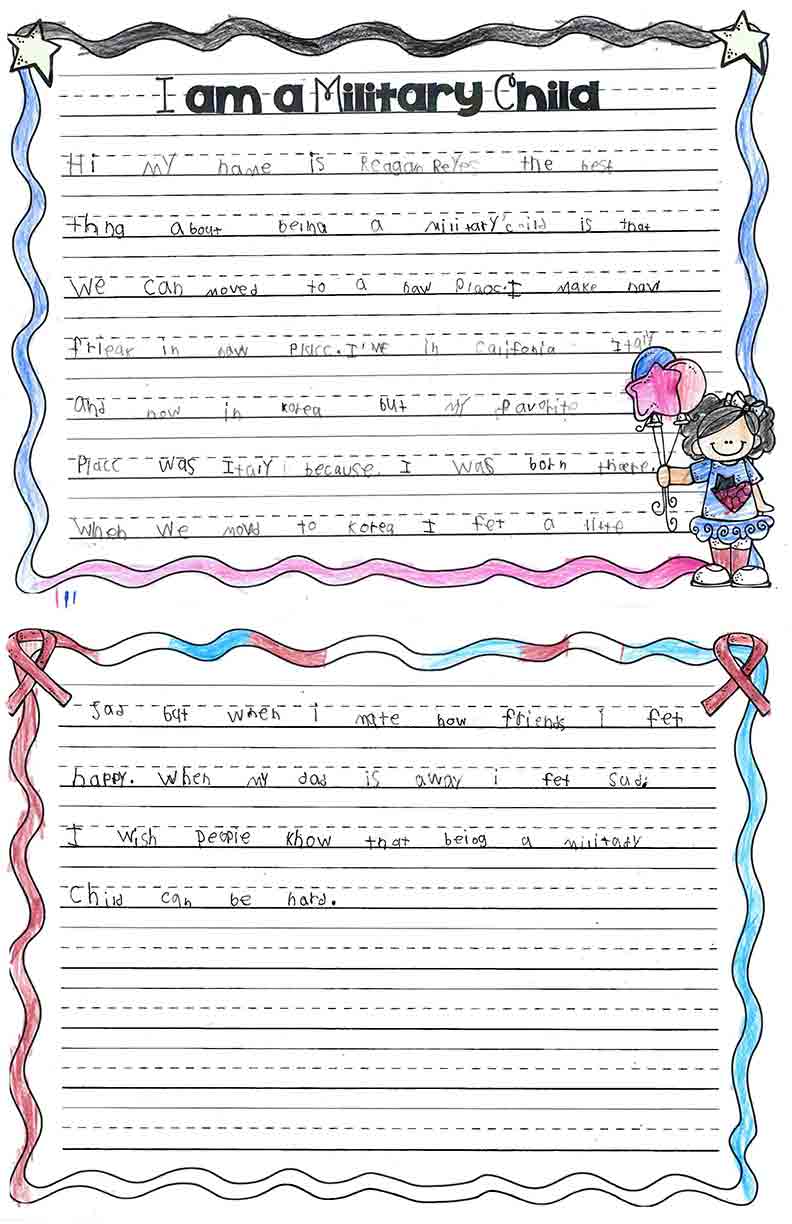 I am a Military Child
Hi my name is Reagan Reyes the best
thng about being a military child is that
We can moved to a naw place. I make naw
friear in naw place. I'VE in califonia Italy
and now in korea but my favorite
Place was Italy because I was born thaere.
When we movd to korea I fet a litte
sad but when i mate now friends I fet
happy. When my dad is away i fet sad.
I wish people know that being a military
Child can be hard.